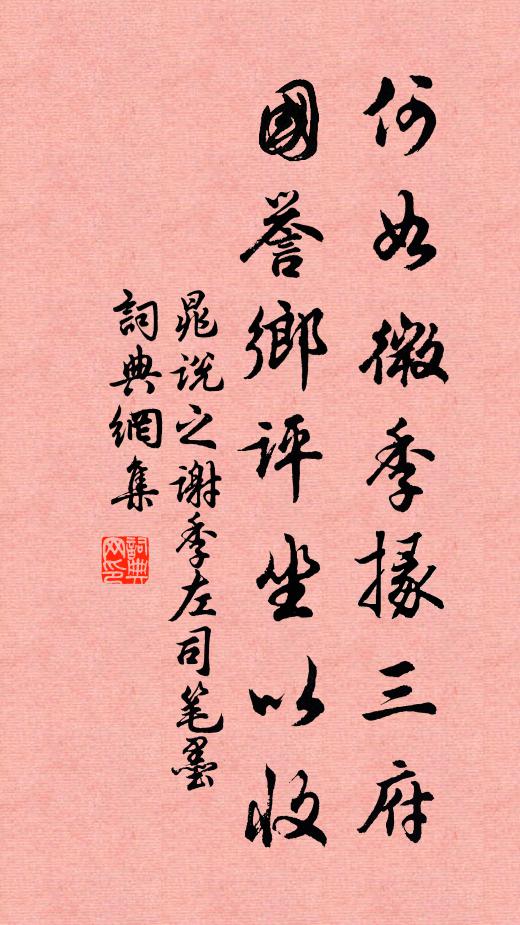 何如微季掾三府
國譽鄉評坐以收
晁说之谢季左司笔墨
詞典網集
詞典网印